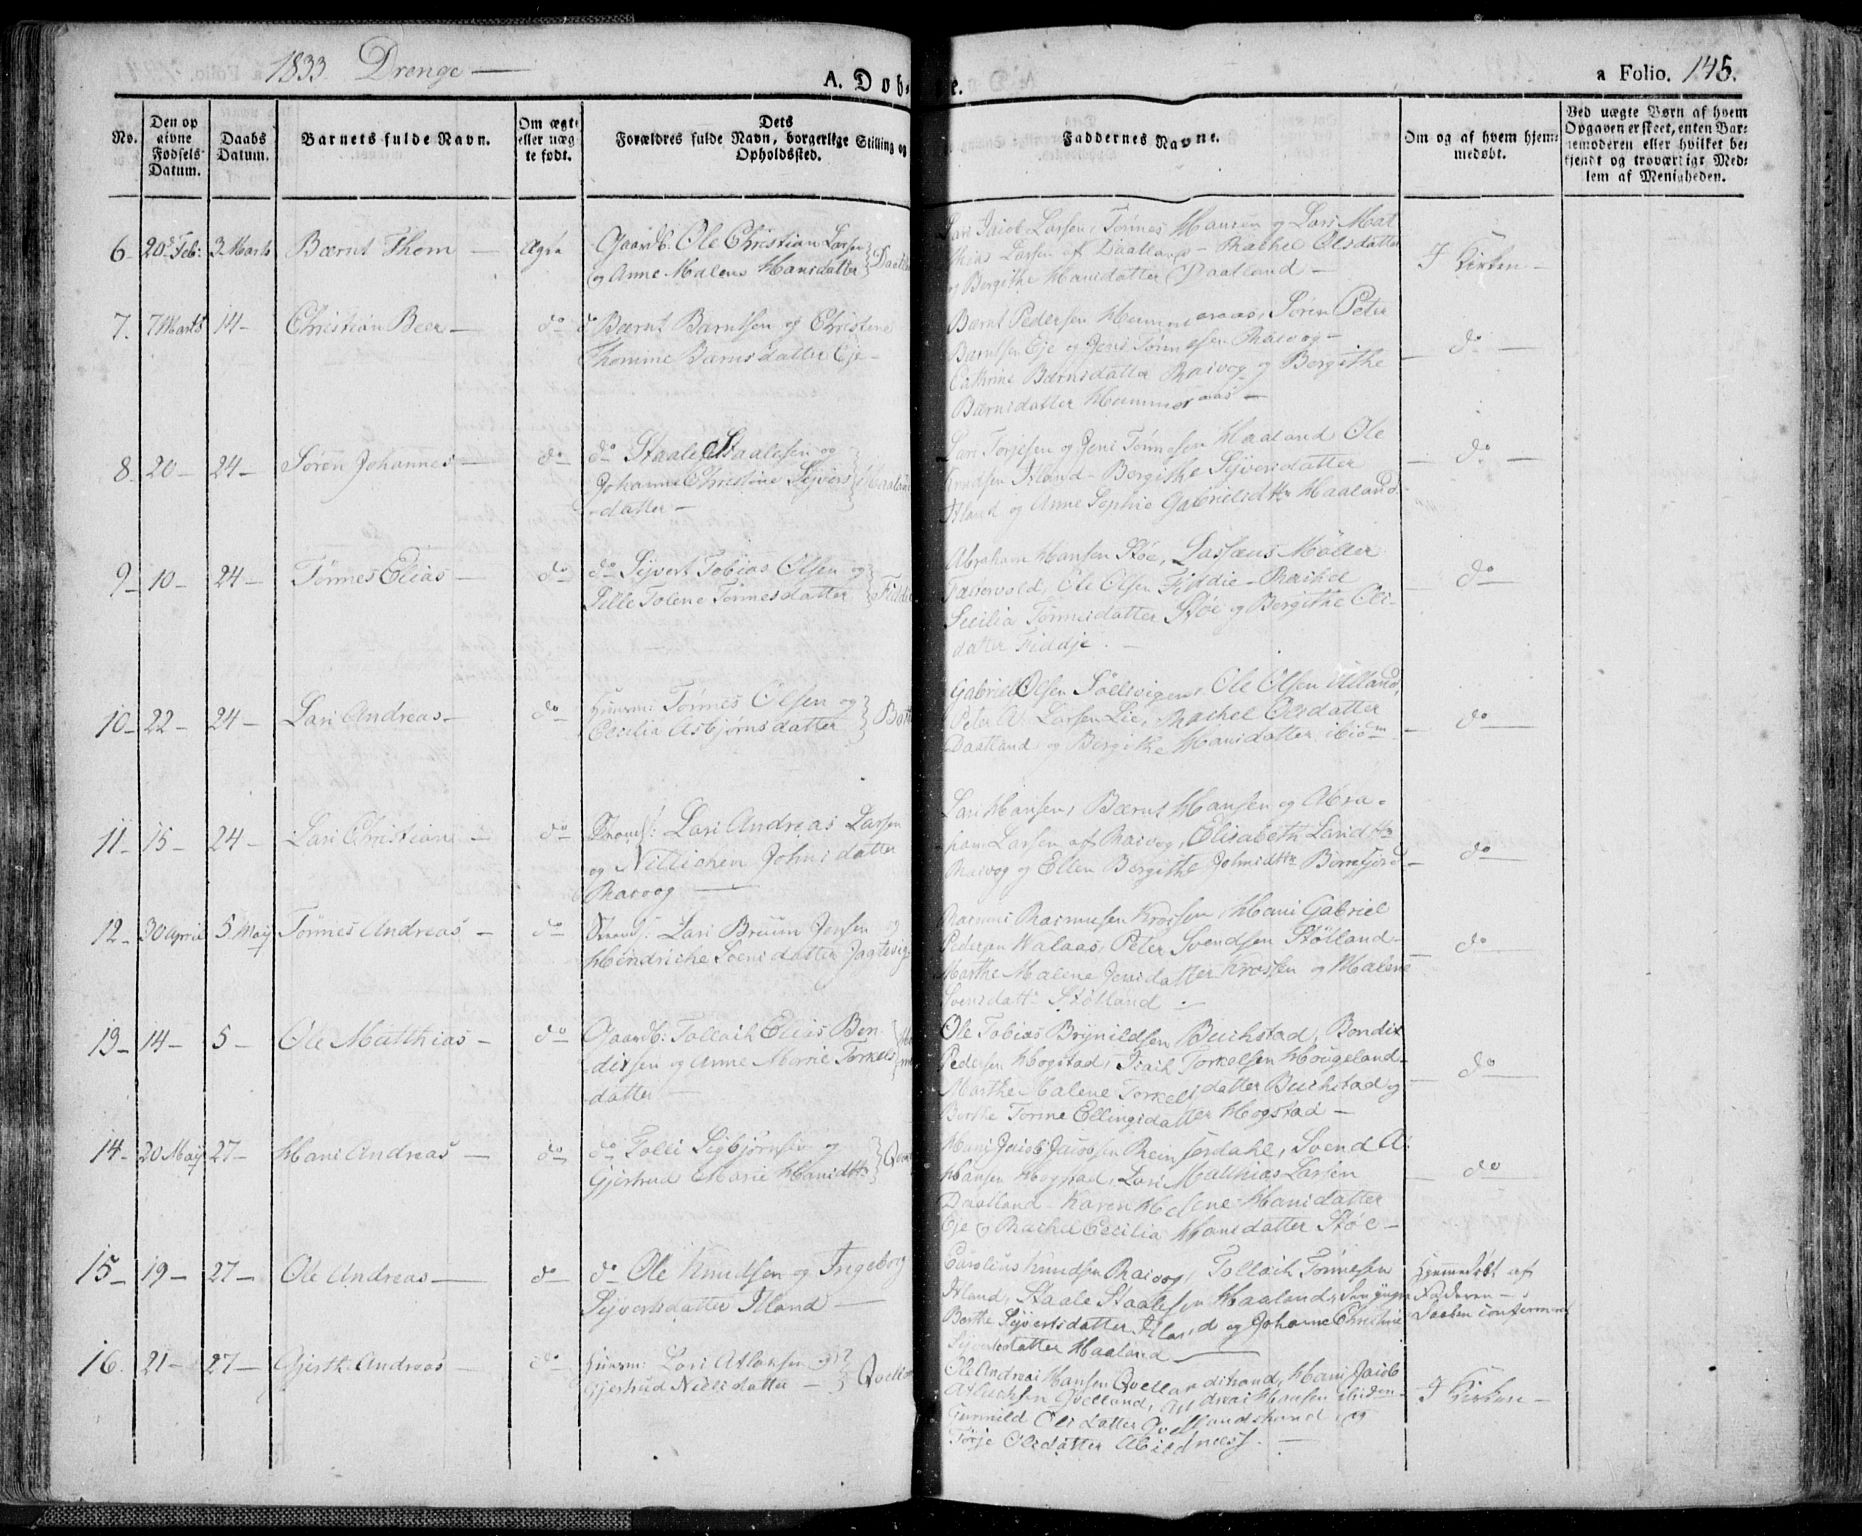 1833. Drenge —
A. Døb
e.
a Folio. 145.
No.
Den op
givne
Fødsels
Datum.
Daabs
Datum.
Barnets fulde Navn.
Om ægte
eller uæg
te født.
Dets
Forældres fulde Navn, borgerlige Stilling og
Opholdssted.
Faddernes Navne.
Om og af hvem hjem-
medøbt.
Ved uægte Børn af hvem
Opgaven er skeet, enten Bar-
nemoderen eller hvilket be-
kjendt og troværdigt Med-
lem af Menigheden.
6 20 Feb: 3 Marts Bærnt Thom — Ægte Gaardb. Ole Christian Larsen
og Anne Malene Hansdatter
Lars Jacob Larsen, Tønnes Hansen og Lars Mat
thias Larsen af Daatland — Rachel Olsdatter
og Bergithe Hansdatter Daatland —
I Kirken —
7. 7 Marts 14 — Christian Beer — do do Bærnt Barntsen og Christine
Thomine Bærnsdatter Eje —
Bærnt Pedersen Hummeraas, Søren Peter
Barntsen Eje og Jens Tønnesen Rasvog —
Cathrine Bærnsdatter Rasvog og Bergithe
Bærnsdatter Hummeraas —
do —
8 20 — 24 — Søren Johannes — do do Staale Staalesen og
Johanne Christine Sijvers
datter —
Lars Torjesen og Jens Tønnesen Haaland, Ole
Knudsen Itland — Bergithe Sijversdatter
Itland og Anne Sophie Gabrielsdtr Haaland.
do —
9 — 10 — 24 — Tønnes Elias — do do Sijvert Tobias Olsen og
Sille Tolene Tønnesdatter
Abraham Hansen Støe, Lassæus Møller
Ole Olsen Fiddie — Rachel
Secilia Tønnesdatter Støe og Bergithe Ols-
datter Fiddje. —
do —
10 — 22 — 24 — Lars Andreas — do Huusm: Tønnes Olsen og
Cecilia Asbjørnsdatter
Gabriel Olsen Sølisvigen, Ole Olsen Itland,
Peter A. Larsen Lie, Rachel Olsdatter
Daatland og Bergithe Hansdatter ibidm —
do —
11 — 15 — 24 — Lars Christian — do Lars Andreas Larsen
og Nillichen Johnsdatter
Rasvog —
Lars Hansen, Bærnt Hansen og Abra-
ham Larsen af Rasvog, Elisabeth Larsdtr
Rasvog og Ellen Bergithe Johnsdtr Borrefjord —
do —
12 — 30 April 5 Maij Tønnes Andreas — do Lars Bruun Jensen og
Hendriche Svensdatter
Rasmus Rasmusen Krossen, Hans Gabriel
Pedersen Walaas, Peter Svendsen Stølland —
Marthe Malene Jensdatter Krossen og Malene
Svensdatter Stølland —
do —
13 — 14 — 5 — Ole Matthias — do Gaardb: Tollach Elias Ben-
dixsen og Anne Marie Torkels
datter —
Ole Tobias Brynildsen Buchstad, Bendix
Pedersen Hogstad, Isach Torkelsen Hougeland —
Marthe Malene Torkelsdatter Buchstad og
Berthe Tomine Ellingsdatter Hogstad —
do —
14 — 20 Maij 27 — Hans Andreas — do do Tolli Sigbjørnsen og
Gjertrud Marie Hansdtr
Hans Jacob Jacobsen Svend A.
Hansen Hogstad, Lars Matthias Larsen
Daatland — Karen Helene Hansdatter
Eje og Rachel Cecilia Hansdatter Støe —
do
15 — 19 — 27 — Ole Andreas — do — do Ole Knudsen og Ingeborg
Sijvertsdatter Itland —
Carolius Knudsen Rasvog, Tollach Tønnesen
Itland, Staale Staalesen Haaland,
Berthe Sijvertsdatter Itland og Johanne Christine
Sijvertsdatter Haaland —
Hjemmedøbt af
Faderen —
Daaben confirmeret
16. 21 — 27 — Gjerth Andreas — do Huusm: Lars Atlaksen og
Gjertrud Nielsdatter —
Ole Andreas Hansen Qvellandstrand, Hans Jacob
Atlaksen Qvelland, Andreas Hansen ibiden —
Gunnild Olsdatter Qvellandstrand, og
Torje Olsdatter Abildness. —
I Kirken —